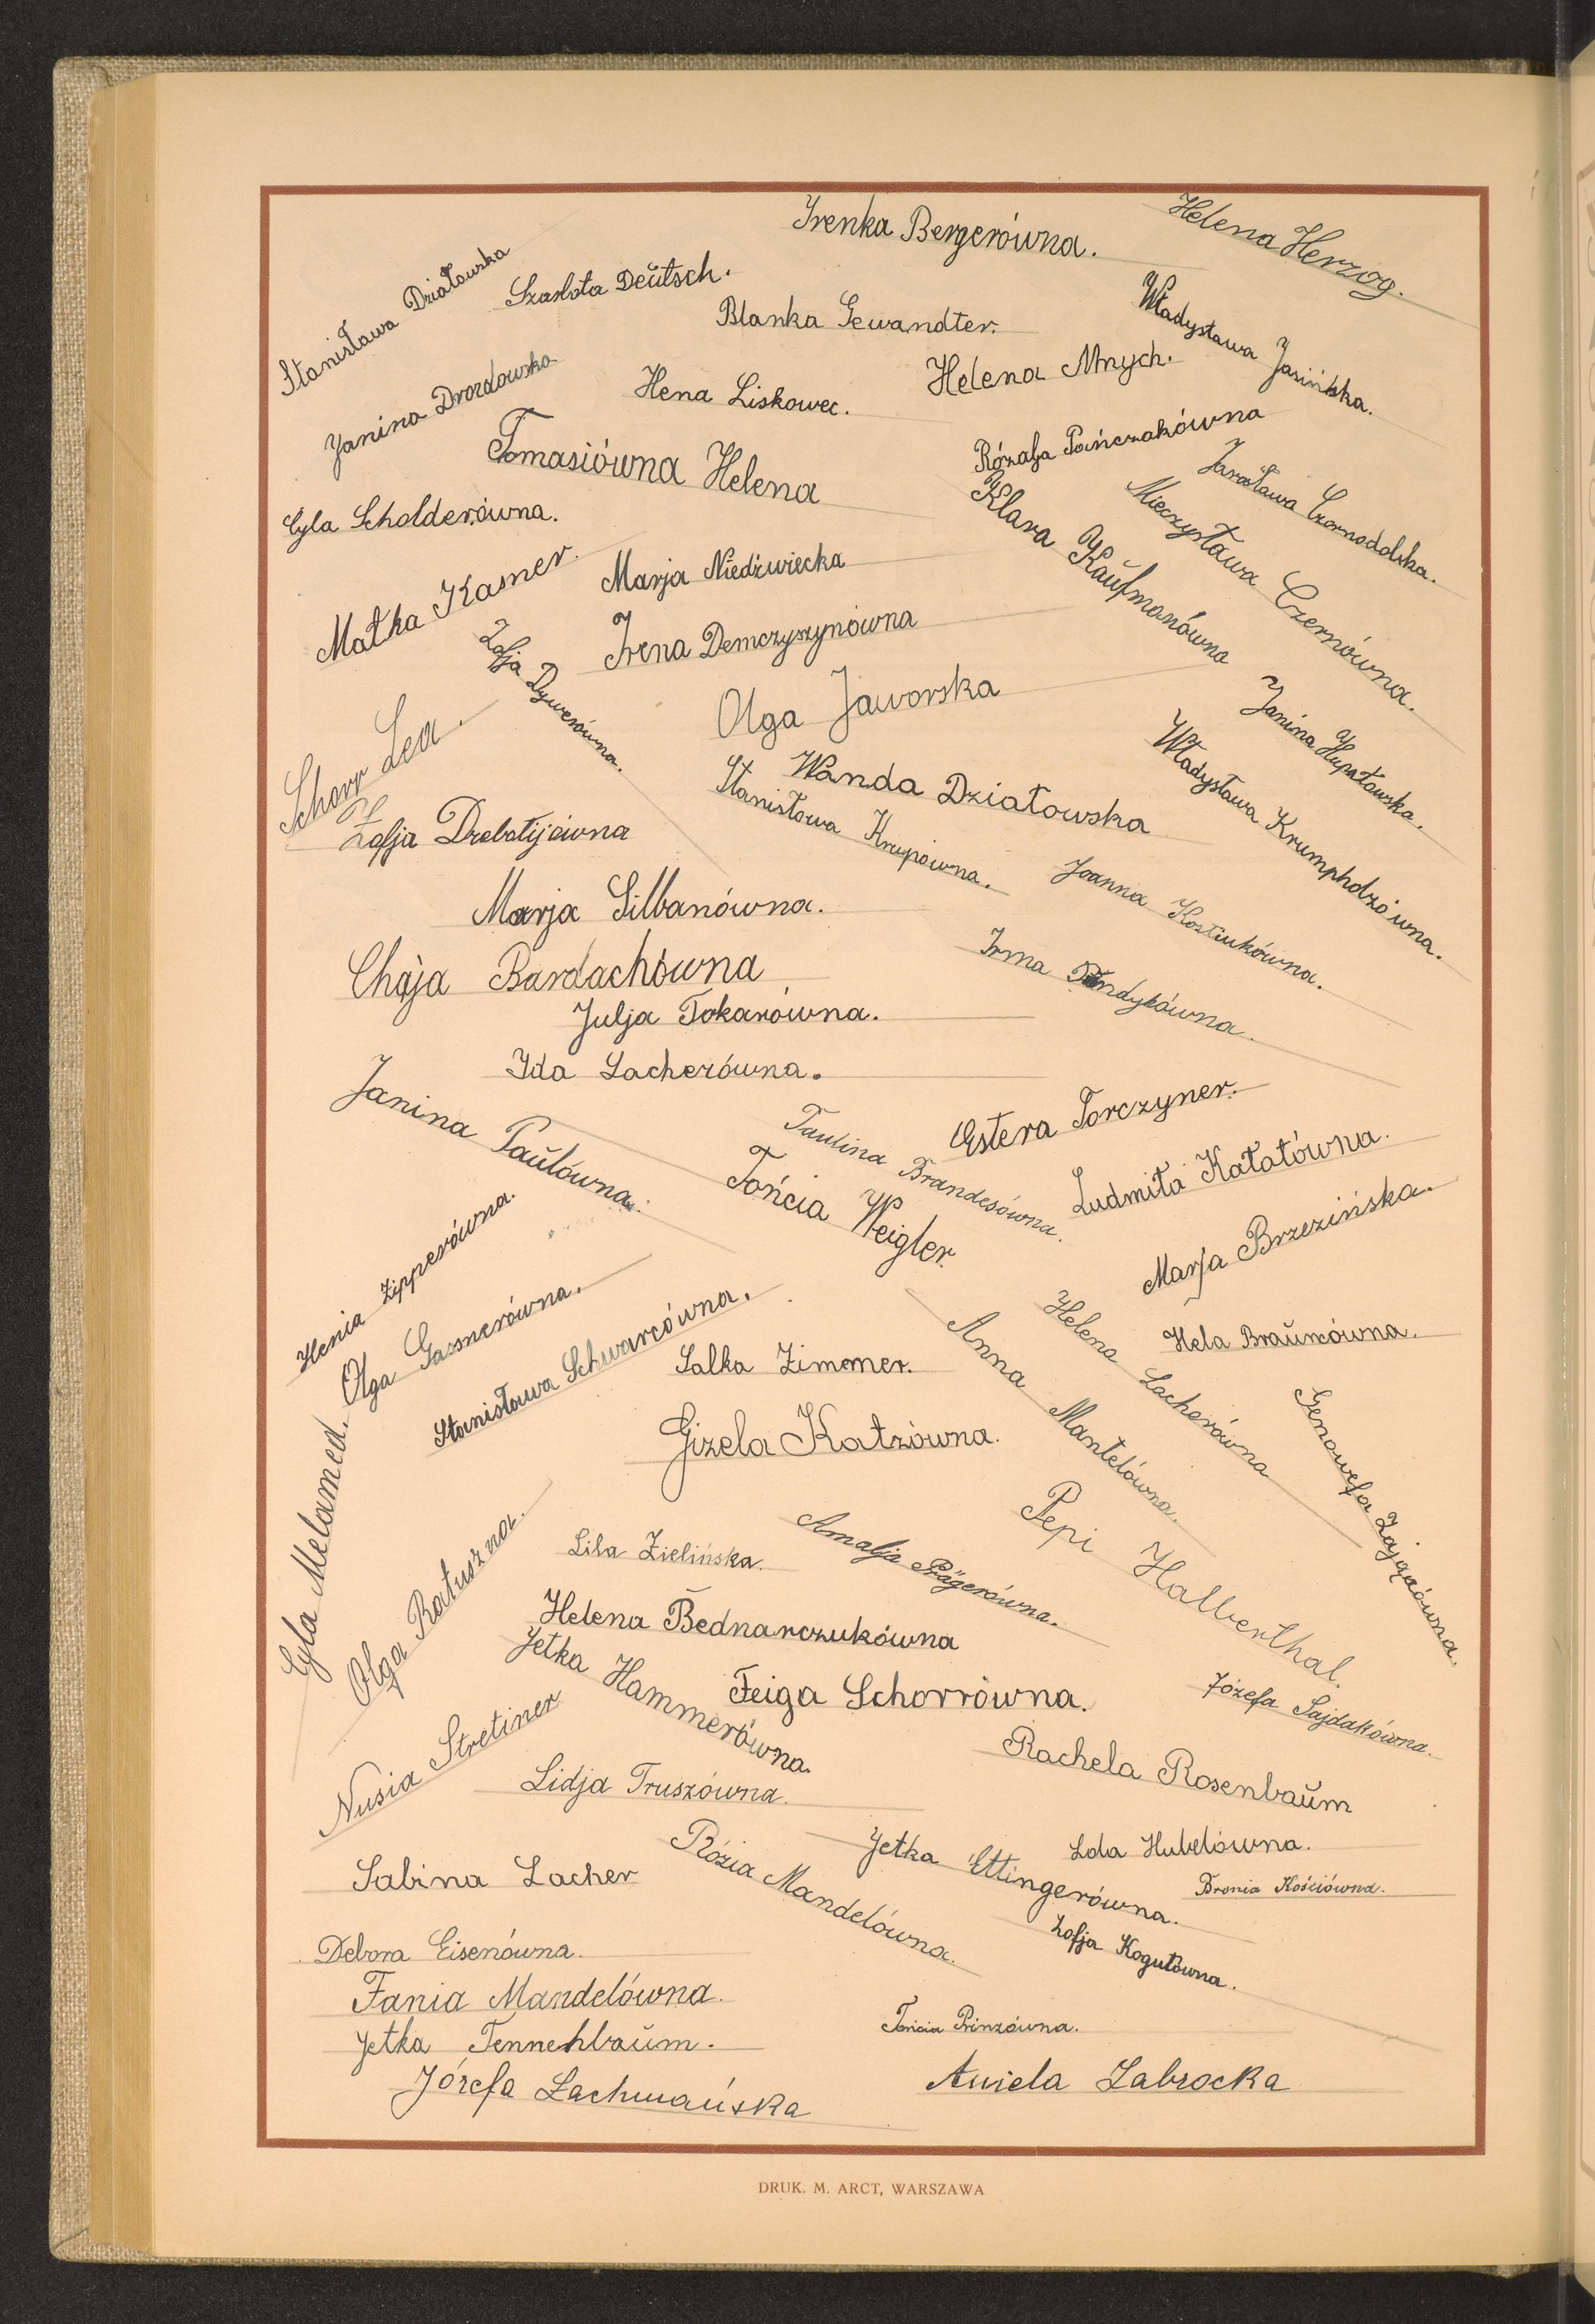 Irenka Bergerówna.
Helena Herzog.
Stanisława Działowska
Szarlota Deŭtsch.
Blanka Gewandter.
Władysława Jasińska.
Janina Drozdowska
Hena Liskowec.
Helena Mnych.
Tomasiówna Helena
Rózalja Pańczakówna
Jarosława Czornodolska.
Cyla Scholderówna.
Klara Kaŭfmanówna
Mieczysława Czernówna.
Matka Kasner.
Marja Niedźwiecka
Zofja Dywerówna.
Irena Demczyszynówna
Olga Jaworska
Janina Hupałowska.
Schorr Lea.
Wanda Działowska
Władysława Krumpholzówna.
Zofja Drebotijówna
Stanisława Krupówna.
Joanna Kostiukówna.
Marja Silbanówna.
Chaja Bardachówna
Irma
Julja Tokarówna.
Ida Lacherówna.
Janina Paŭlówna.
Paulina Brandesówna.
Estera Torczyner.
Tońcia Weigler.
Ludmiła Kałatówna.
Marja Brzezińska.
Henia Zipperówna.
Olga Gassnerówna.
Stanisława Schwarcówna.
Salka Zimmer.
Anna Mantelówna.
Helena Lacherówna
Hela Braŭnówna.
Gizela Katzówna.
Genowefa Zającówna.
Cyla Melamed.
Olga Ratuszna.
Lila Zielińska.
Amalja Prägerówna.
Pepi Halberthal.
Helena Bednarczukówna
Jetka Hammerówna.
Feiga Schorrówna.
Józefa Sajdakówna.
Nusia Stretiner
Lidja Truszówna.
Rachela Rosenbaŭm
Sabina Lacher
Rózia Mandelówna.
Jetka Ettingerówna.
Lola Hubelówna.
Bronia Kościówna.
Debora Eisenówna.
Zofja Kogutówna.
Fania Mandelówna.
Tońcia Prinzówna.
Jetka Tennenbaŭm.
Józefa Lachmańska
Aniela Zabrocka
DRUK. M. ARCT, WARSZAWA